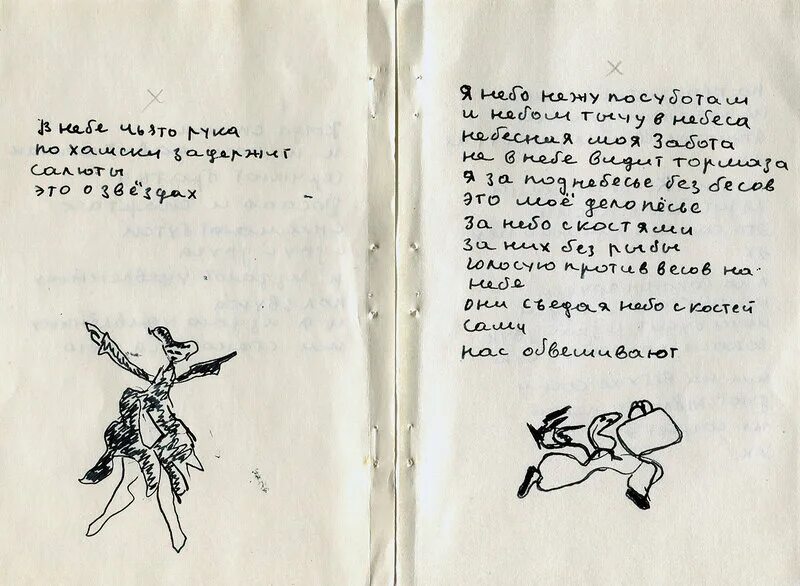 в небе чьято рука
по хамски задержит
салюты
это о звёздах
Я небо нежу по суботам
и небом тычу в небеса
небесная моя Забота
не в небе видит тормаза
Я за поднебесье без бесов
Это моё дело пёсье
За небо с костями
За них без рыбы
Голосую против весов на
небе
они съедая небо с костей
саму
нас обвешивают